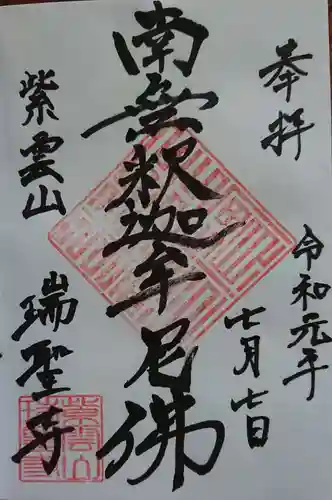 奉拝
令和元年
七月七日
南無釈迦牟尼佛
紫雲山
瑞聖寺